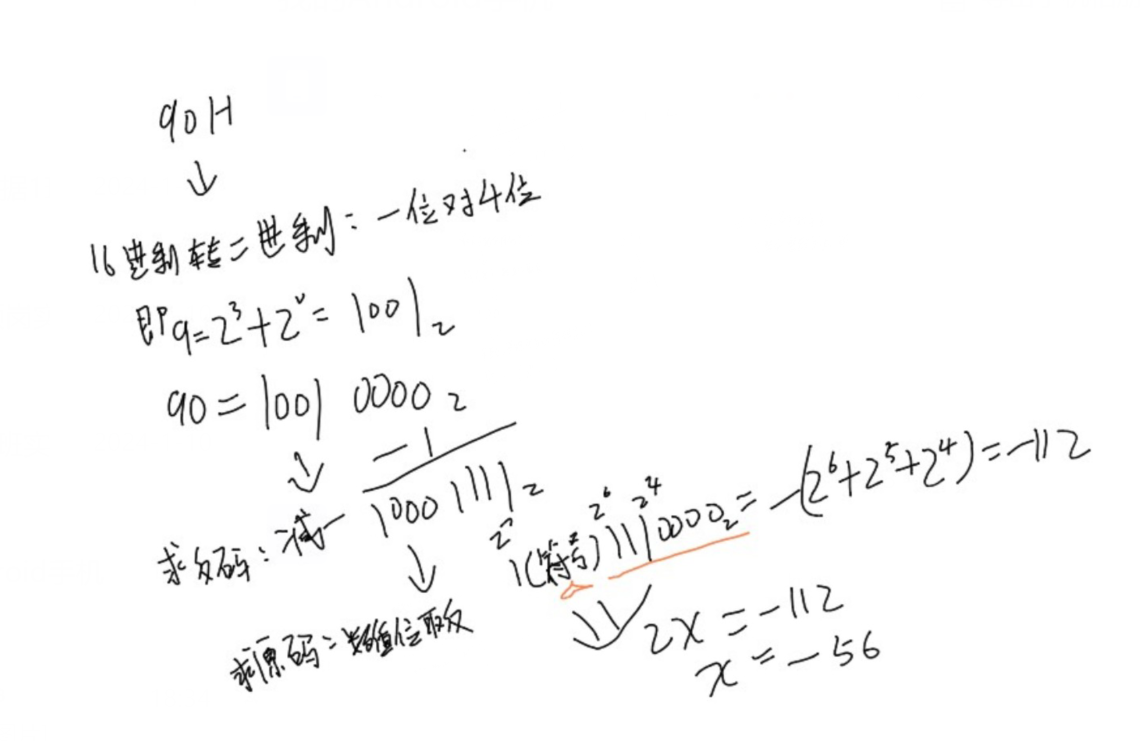 90H
↓
16进制转二进制：一位对4位
即9=2³+2⁰=1001₂
90=1001 0000₂
-1
↓
求反码：减一 10001111₂
2⁷ 2⁶ 2⁴
1(符号)1110000₂=-(2⁶+2⁵+2⁴)=-112
↓
求原码：数值位取反
2x=-112
x=-56